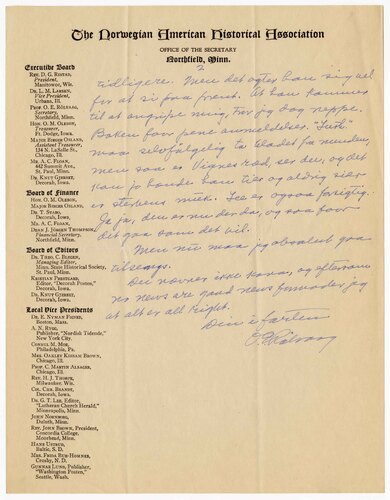 The Norwegian American Historical Association
OFFICE OF THE SECRETARY
Northfield, Minn.
2
Executive Board
REV. D. G. RISTAD,
President,
Manitowoc, Wis.
DR. L. M. LARSEN,
Vice President,
Urbana, Ill.
PROF. O. E. RÖLVAAG,
Secretary,
Northfield, Minn.
HON. O. M. OLESON,
Treasurer,
Ft. Dodge, Iowa.
MAJOR BIRGER OSLAND,
Assistant Treasurer,
134 N. LaSalle St.
Chicago, Ill.
MR. A. C. FLOAN,
442 Summit Ave.,
St. Paul, Minn.
DR. KNUT GJERSET,
Decorah, Iowa.
Board of Finance
HON. O. M. OLESON,
MAJOR BIRGER OSLAND,
DR. T. STABO,
Decorah, Iowa.
MR. A. C. FLOAN,
DEAN J. JÖRGEN THOMPSON,
Financial Secretary,
Northfield, Minn.
Board of Editors
DR. THEO. C. BLEGEN,
Managing Editor,
Minn. State Historical Society,
St. Paul, Minn.
KRISTIAN PRESTGARD,
Editor, "Decorah Posten,"
Decorah, Iowa.
DR. KNUT GJERSET,
Decorah, Iowa.
Local Vice Presidents
DR. E. NYMAN FIGVED,
Boston, Mass.
A. N. RYGG,
Publisher, "Nordisk Tidende,"
New York City.
CONSUL M. MOE,
Philadelphia, Pa.
MRS. OAKLEY KISSAM BROWN,
Chicago, Ill.
PROF. C. MARTIN ALSAGER,
Chicago, Ill.
REV. H. J. THORPE,
Milwaukee, Wis.
COL. CHR. BRANDT,
Decorah, Iowa.
DR. G. T. LEE, Editor,
"Lutheran Church Herald,"
Minneapolis, Minn.
JOHN NORNBORG,
Duluth, Minn.
REV. JOHN BROWN, President,
Concordia College,
Moorhead, Minn.
HANS USTRUD,
Baltic, S. D.
MRS. FRIDA BUE-HOMNES,
Crosby, N. D.
GUNNAR LUND, Publisher,
"Washington Posten,"
Seattle, Wash.
tidligere. Men det agter han sig vel
for at si paa prent. At han kommer
til at angripe mig, tør jeg bog neppe.
Boken faar pene anmeldelser. "Luth"
maa selvfølgelig ta bladet fra munden,
men saa er Vignes ræd, ser du, og det
kan jo hande han tier og aldrig sier
et stevens muk. Lee er ogsaa forsigtig.
Ja ja, den er nu der da, og saa faar
det gaa som det vil.
Men nu maa jeg absolut gaa
tilsengs.
Du nævner ikke Kaia, og eftersom
no news are good news formoder jeg
at alt er all right.
Din i farten
O E Rölvaag